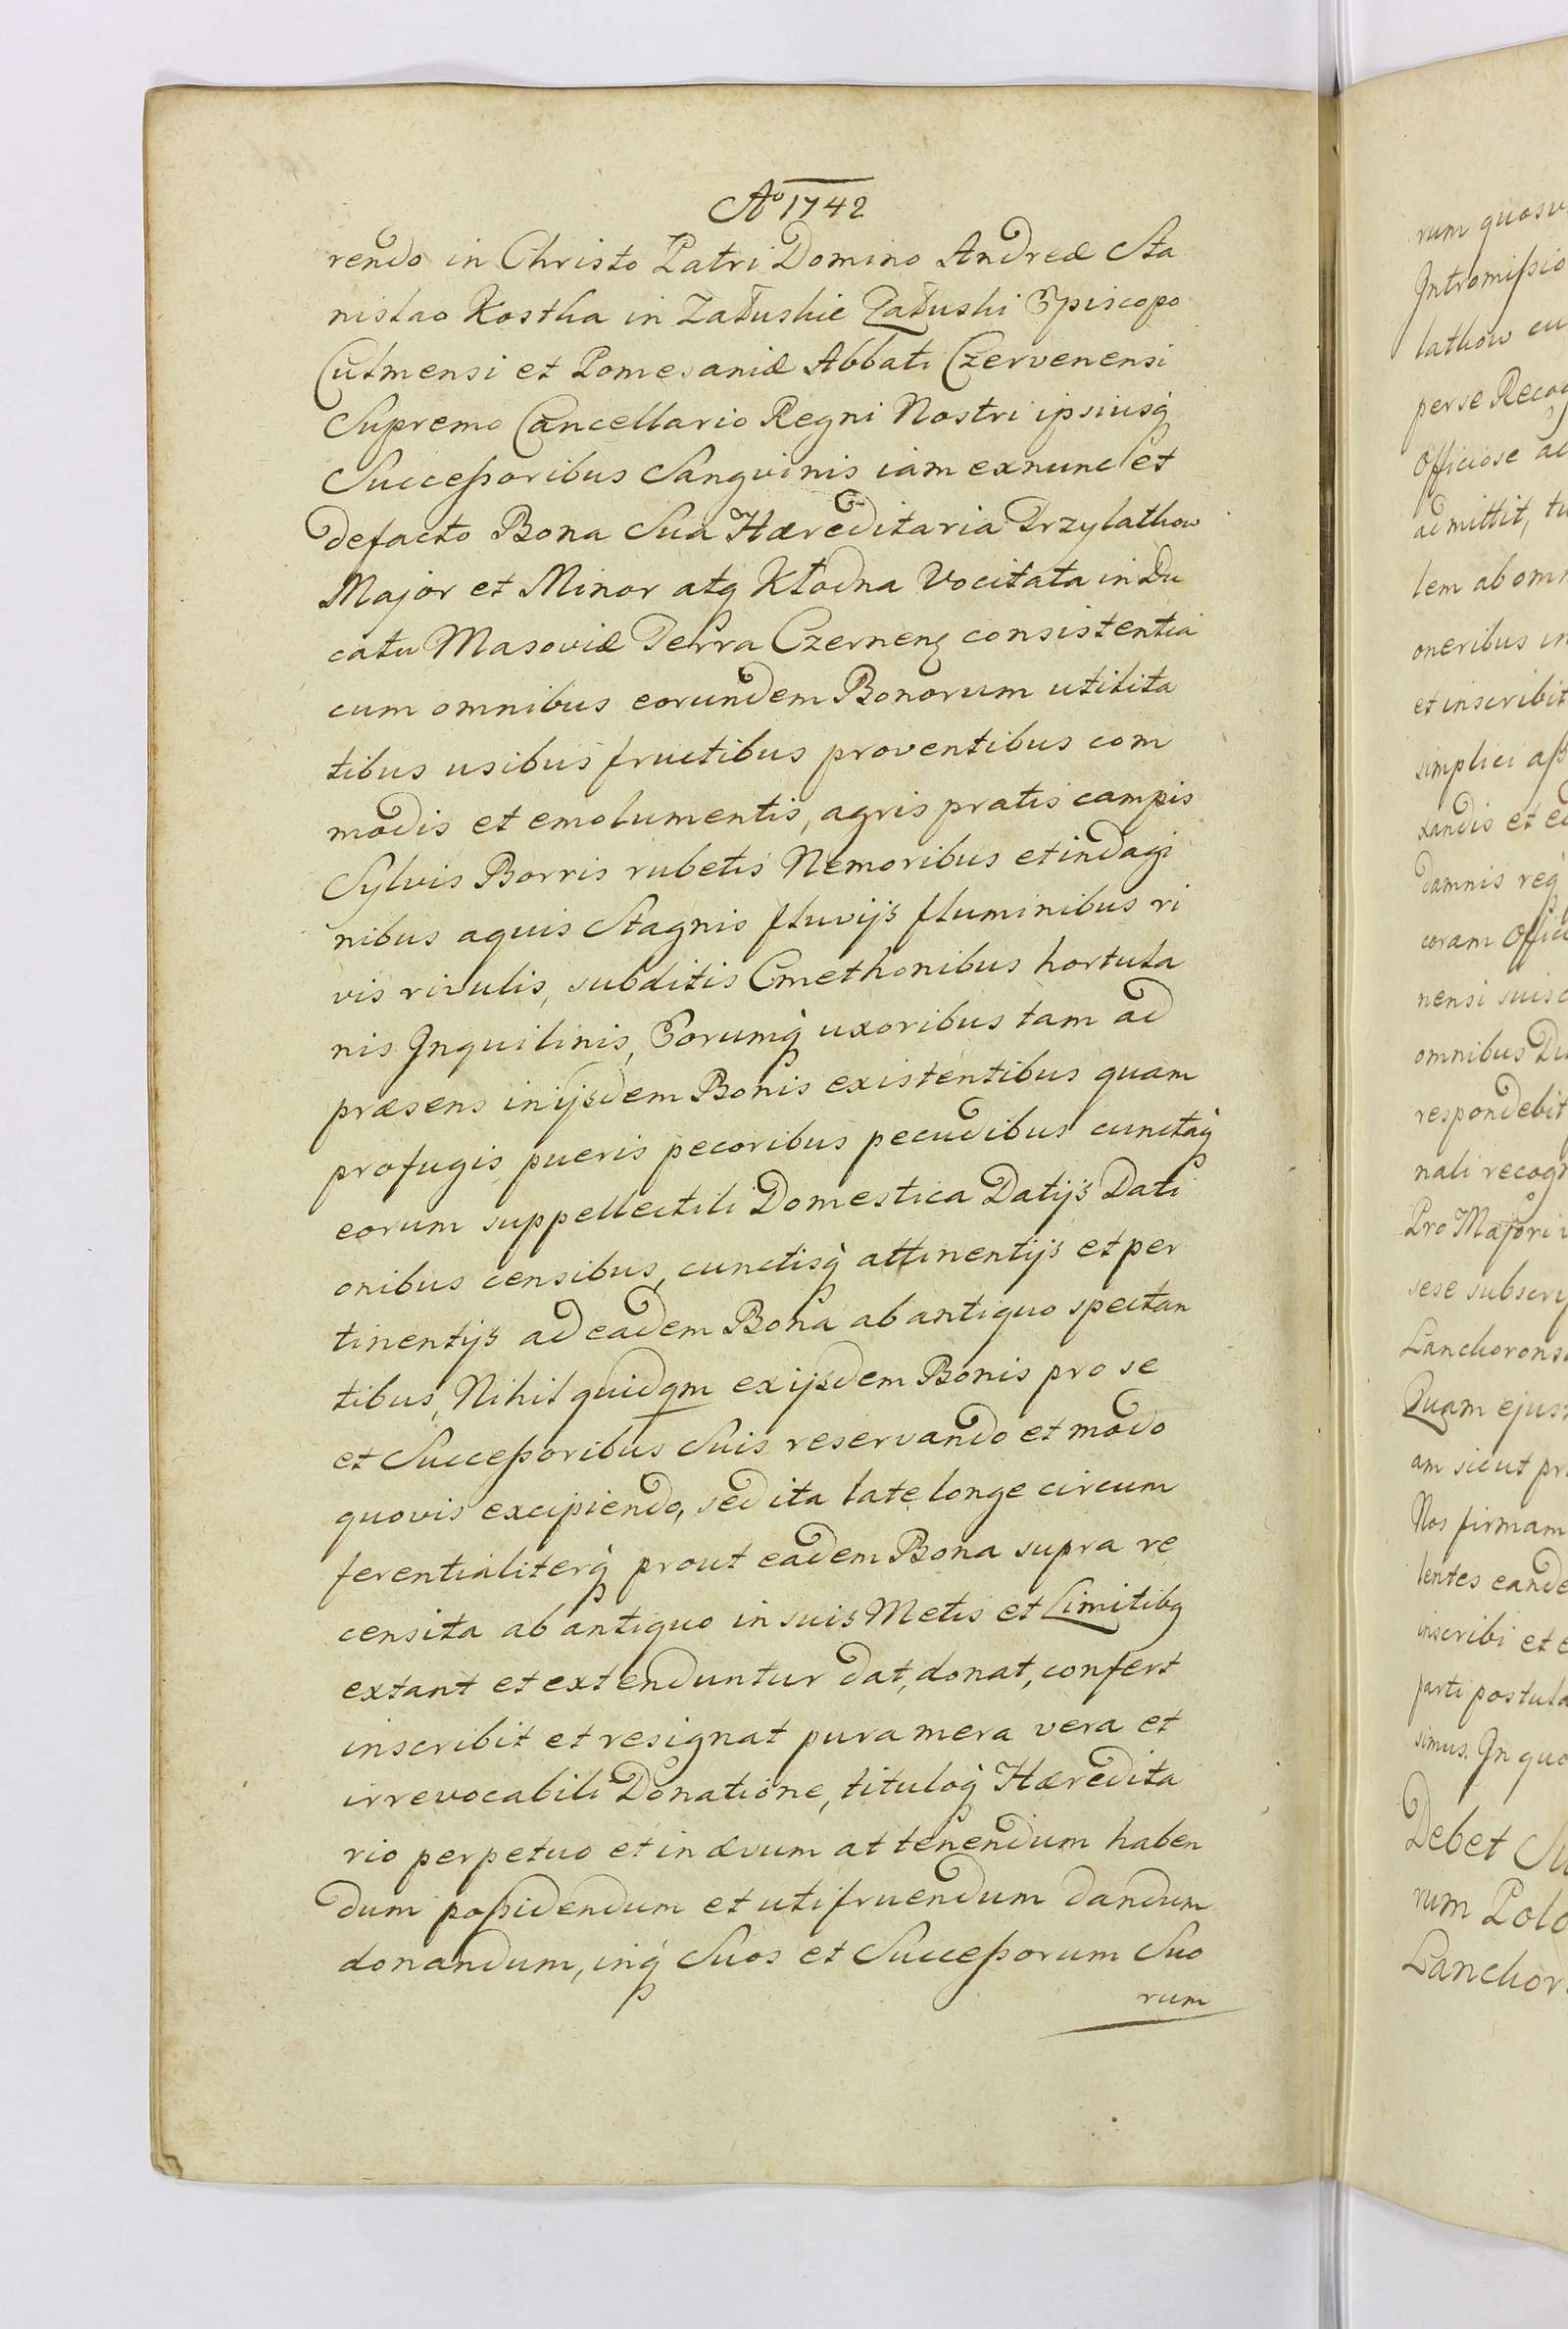 Aº 1742
rendo in Christo Patri Domino Andreæ Sta
nislao Kostka in Załuskie Załuski Episcopo
Culmensi et Pomesaniæ Abbati Czervenensi
Supremo Cancellario Regni Nostri ipsiusq̀
Succeßoribus Sangvinis iam exnunc et
defacto Bona Sua Hæreditaria Przylathow
Major et Minor atq Kłodna Vocitata in Du
catu Masoviæ Terra Czernenq consistentia
cum omnibus eorundem Bonorum utilita
tibus usibus fructibus proventibus com
modis et emolumentis, agris pratis campis
Sylvis Borris rubetis Nemoribus et indagi
nibus aquis Stagnis fluvijs fluminibus ri
vis rivulis, subditis Cmethonibus hortula
nis Inquilinis, Eorumq̀ uxoribus tam ad
præsens in ijsdem Bonis existentibus quam
profugis, pueris pecoribus pecudibus cunctaq̀
eorum suppellectili Domestica Datijs Dati
onibus censibus, cunctisq̀ attinentijs et per
tinentijs ad eadem Bona ab antiquo spectan
tibus, Nihil quidqm ex ijsdem Bonis pro se
et Succeßoribus Suis reservando et modo
quovis excipiendo, sed ita late longe circum
ferentialiterq̀ prout eadem Bona supra re
censita ab antiquo in suis Metis et Limitibq
extant et extenduntur dat, donat, confert
inscribit et resignat pura mera vera et
irrevocabili Donatione, tituloq̀ Hæredita
rio perpetuo et in ævum at tenendum haben
dum poßidendum et utifruendum dandum
donandum, inq̀ Suos et Succeßorum Suo
rum
rum
lathow
per se
Officiose
admittit,
lem ab
oneribus
et inscribit
simplici
xandis et
damnis req̀
coram
nensi
omnibus
respondebit
nali
Pro Majori
sese
Quam
am sicut
Nos firmam
lentes
inscribi et
parti
simus. In
Debet
rum